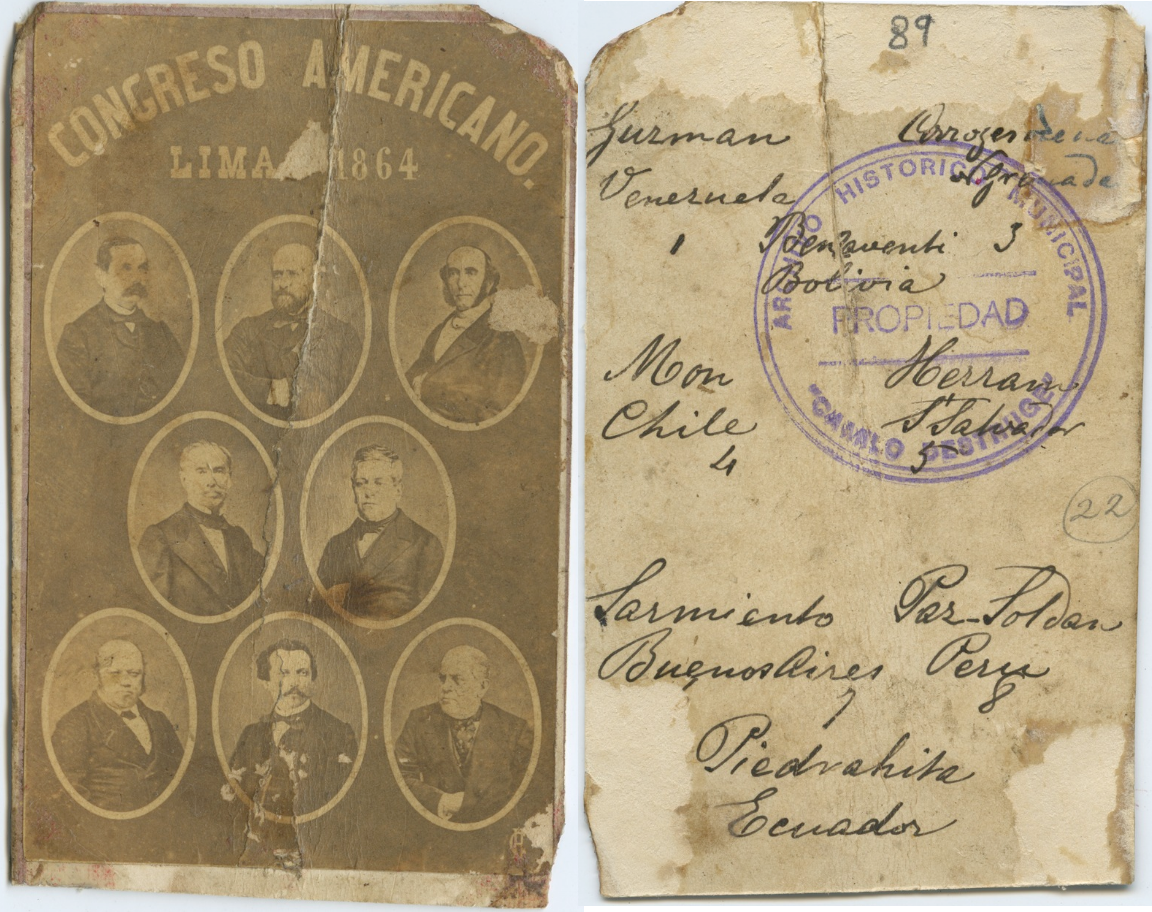 CONGRESO AMERICANO.
LIMA 1864
89
Guzman
Venezuela
1
Arrozemena
Benaventi 3
Bolivia
ARCHIVO HISTORICO MUNICIPAL
PROPIEDAD
"CAMILO DESTRUGE"
Mon
Chile
4
Herran
S. Salvador
5
22
Sarmiento
Buenos Aires
7
Paz-Soldan
Peru
8
Piedrahita
Ecuador